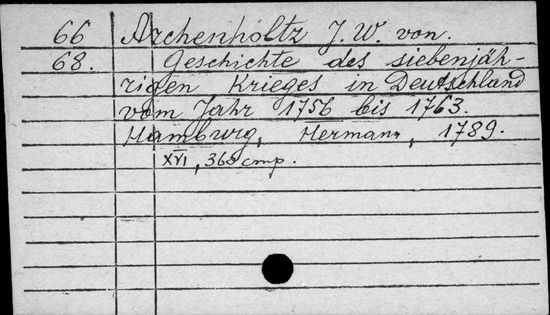 66 Archenholtz J. W. von.
68. Geschichte des siebenjäh-
rigen Krieges in Deutschland
vom Jahr 1756 bis 1763.
Hamburg, Hermann, 1789.
XVI, 368 стр.